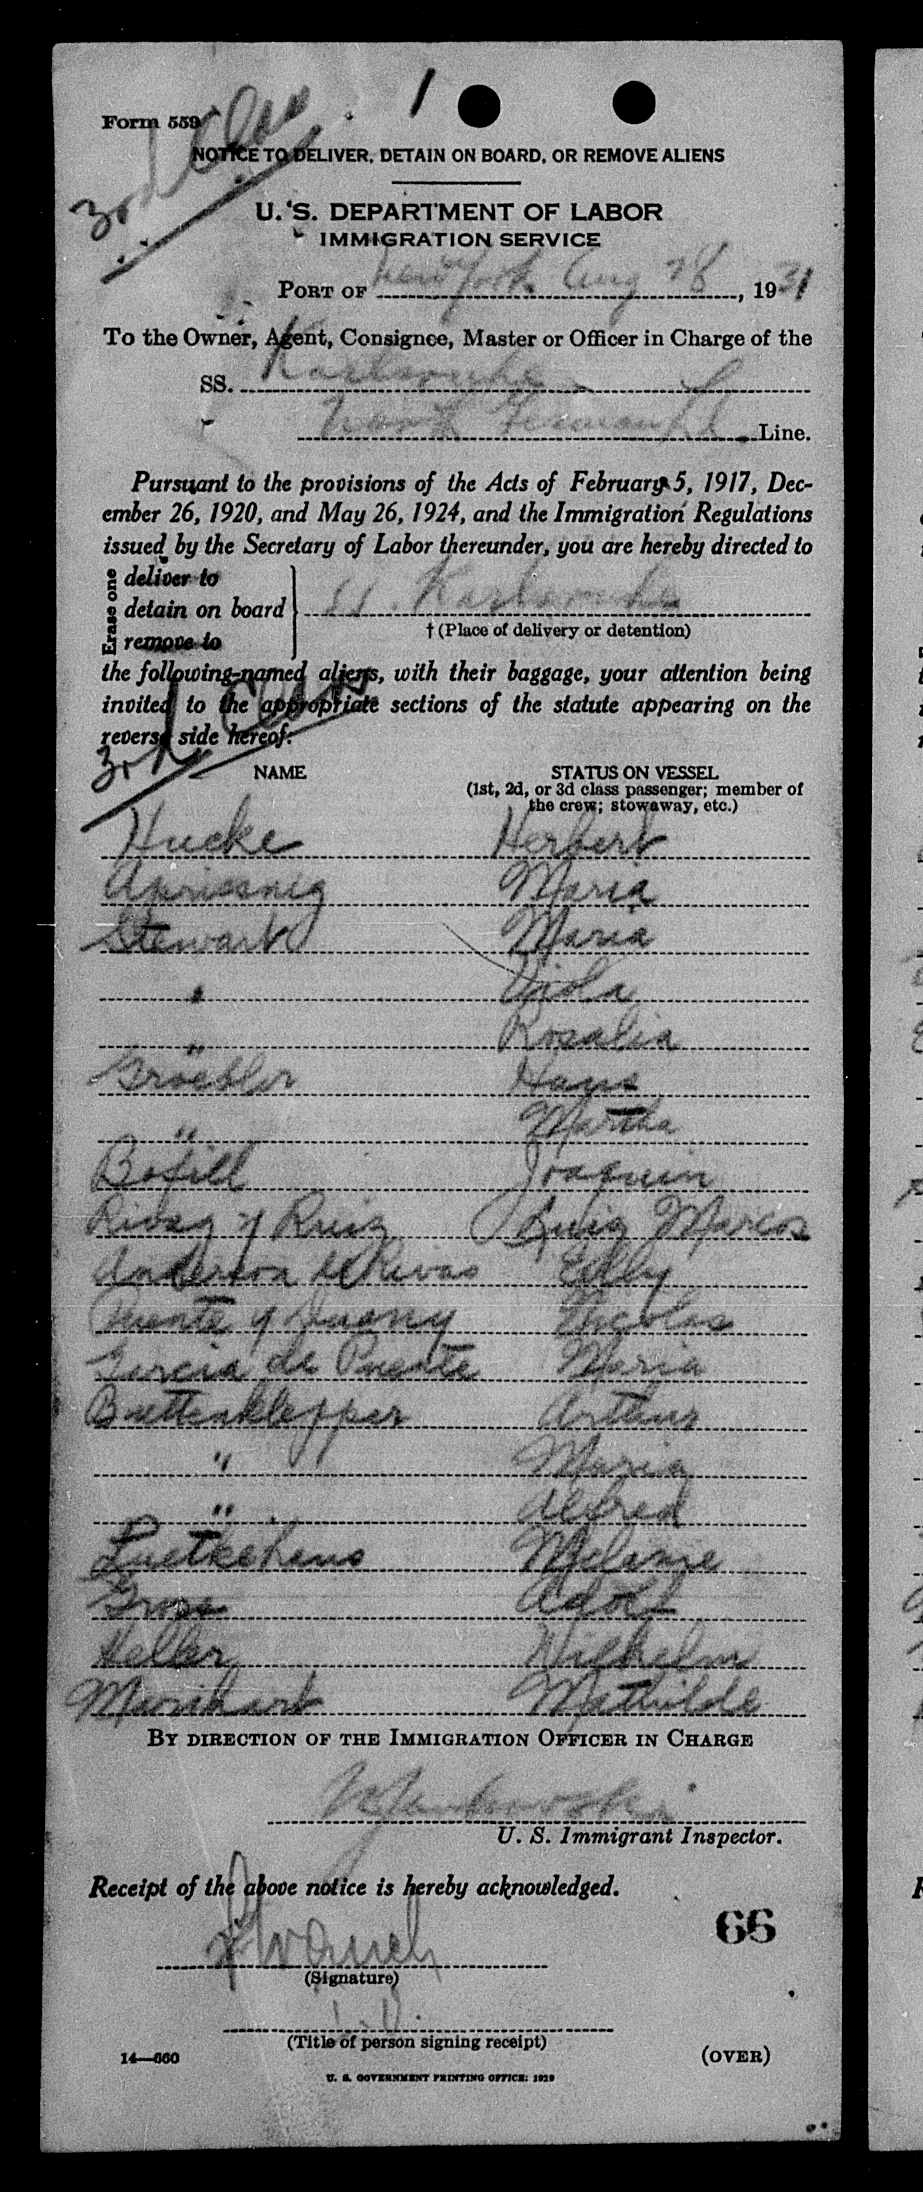 1
Form 559
3rd Class
NOTICE TO DELIVER, DETAIN ON BOARD, OR REMOVE ALIENS
U. S. DEPARTMENT OF LABOR
IMMIGRATION SERVICE
PORT OF New York Aug 28, 1931
To the Owner, Agent, Consignee, Master or Officer in Charge of the
SS. Karlsruhe
North German Ld Line.
Pursuant to the provisions of the Acts of February 5, 1917, Dec-
ember 26, 1920, and May 26, 1924, and the Immigration Regulations
issued by the Secretary of Labor thereunder, you are hereby directed to
Erase one
deliver to
detain on board
remove to
SS. Karlsruhe
† (Place of delivery or detention)
the following-named aliens, with their baggage, your attention being
invited to the appropriate sections of the statute appearing on the
reverse side hereof:
3rd Class
NAME STATUS ON VESSEL
(1st, 2d, or 3d class passenger; member of
the crew; stowaway, etc.)
Hucke Herbert
Maria
Stewart Maria
" Viola
" Rosalia
Hans
" Martha
Bofill Joaquin
Rivas y Ruiz Luis Marcos
Anderson de Rivas Edly
Puente y Duany Nicolas
Garcia de Puente Maria
Buttenklepper Arthur
" Maria
" Alfred
Luetkehaus Melanie
Gross Adolf
Heller Wilhelm
Marihart Mathilde
BY DIRECTION OF THE IMMIGRATION OFFICER IN CHARGE
U. S. Immigrant Inspector.
Receipt of the above notice is hereby acknowledged.
66
(Signature)
(Title of person signing receipt)
14—560 (OVER)
U. S. GOVERNMENT PRINTING OFFICE: 1929